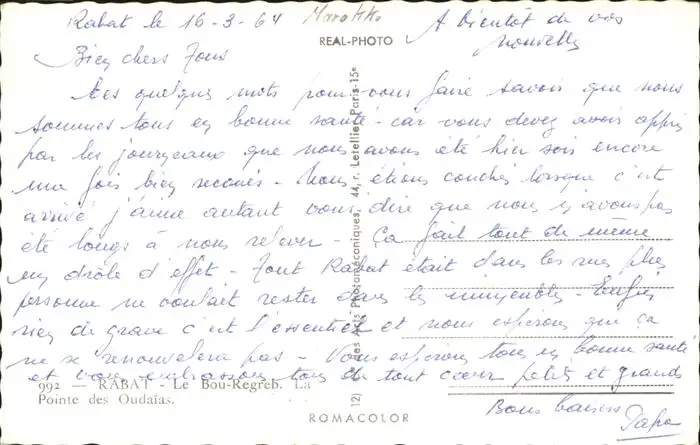 Rabat le 16-3-64
Marokko
A bientôt de vos
nouvelles
REAL-PHOTO
Bien chers Tous
Ces quelques mots pour vous faire savoir que nous
sommes tous en bonne santé - car vous devez avoir appris
par les journeaux que nous avons été hier soir encore
une fois bien secoués - Nous étions couchés lorsque c'est
arrivé j'aime autant vous dire que nous n'avons pas
été longs à nous relever - Ça fait tout de même
un drôle d'effet - Tout Rabat était dans les rues plus
personne ne voulait rester dans les immeubles - Enfin
rien de grave c'est l'essentiel et nous espérons que ça
ne se renouvelera pas - Vous espérons tous en bonne santé
et vous embrassons tous de tout coeur petits et grands
Bons baisers
Papa
992 — RABAT - Le Bou-Regreb. La
Pointe des Oudaïas.
12) Les Arts Photomécaniques, 44, r. Letellier Paris-15e
ROMACOLOR